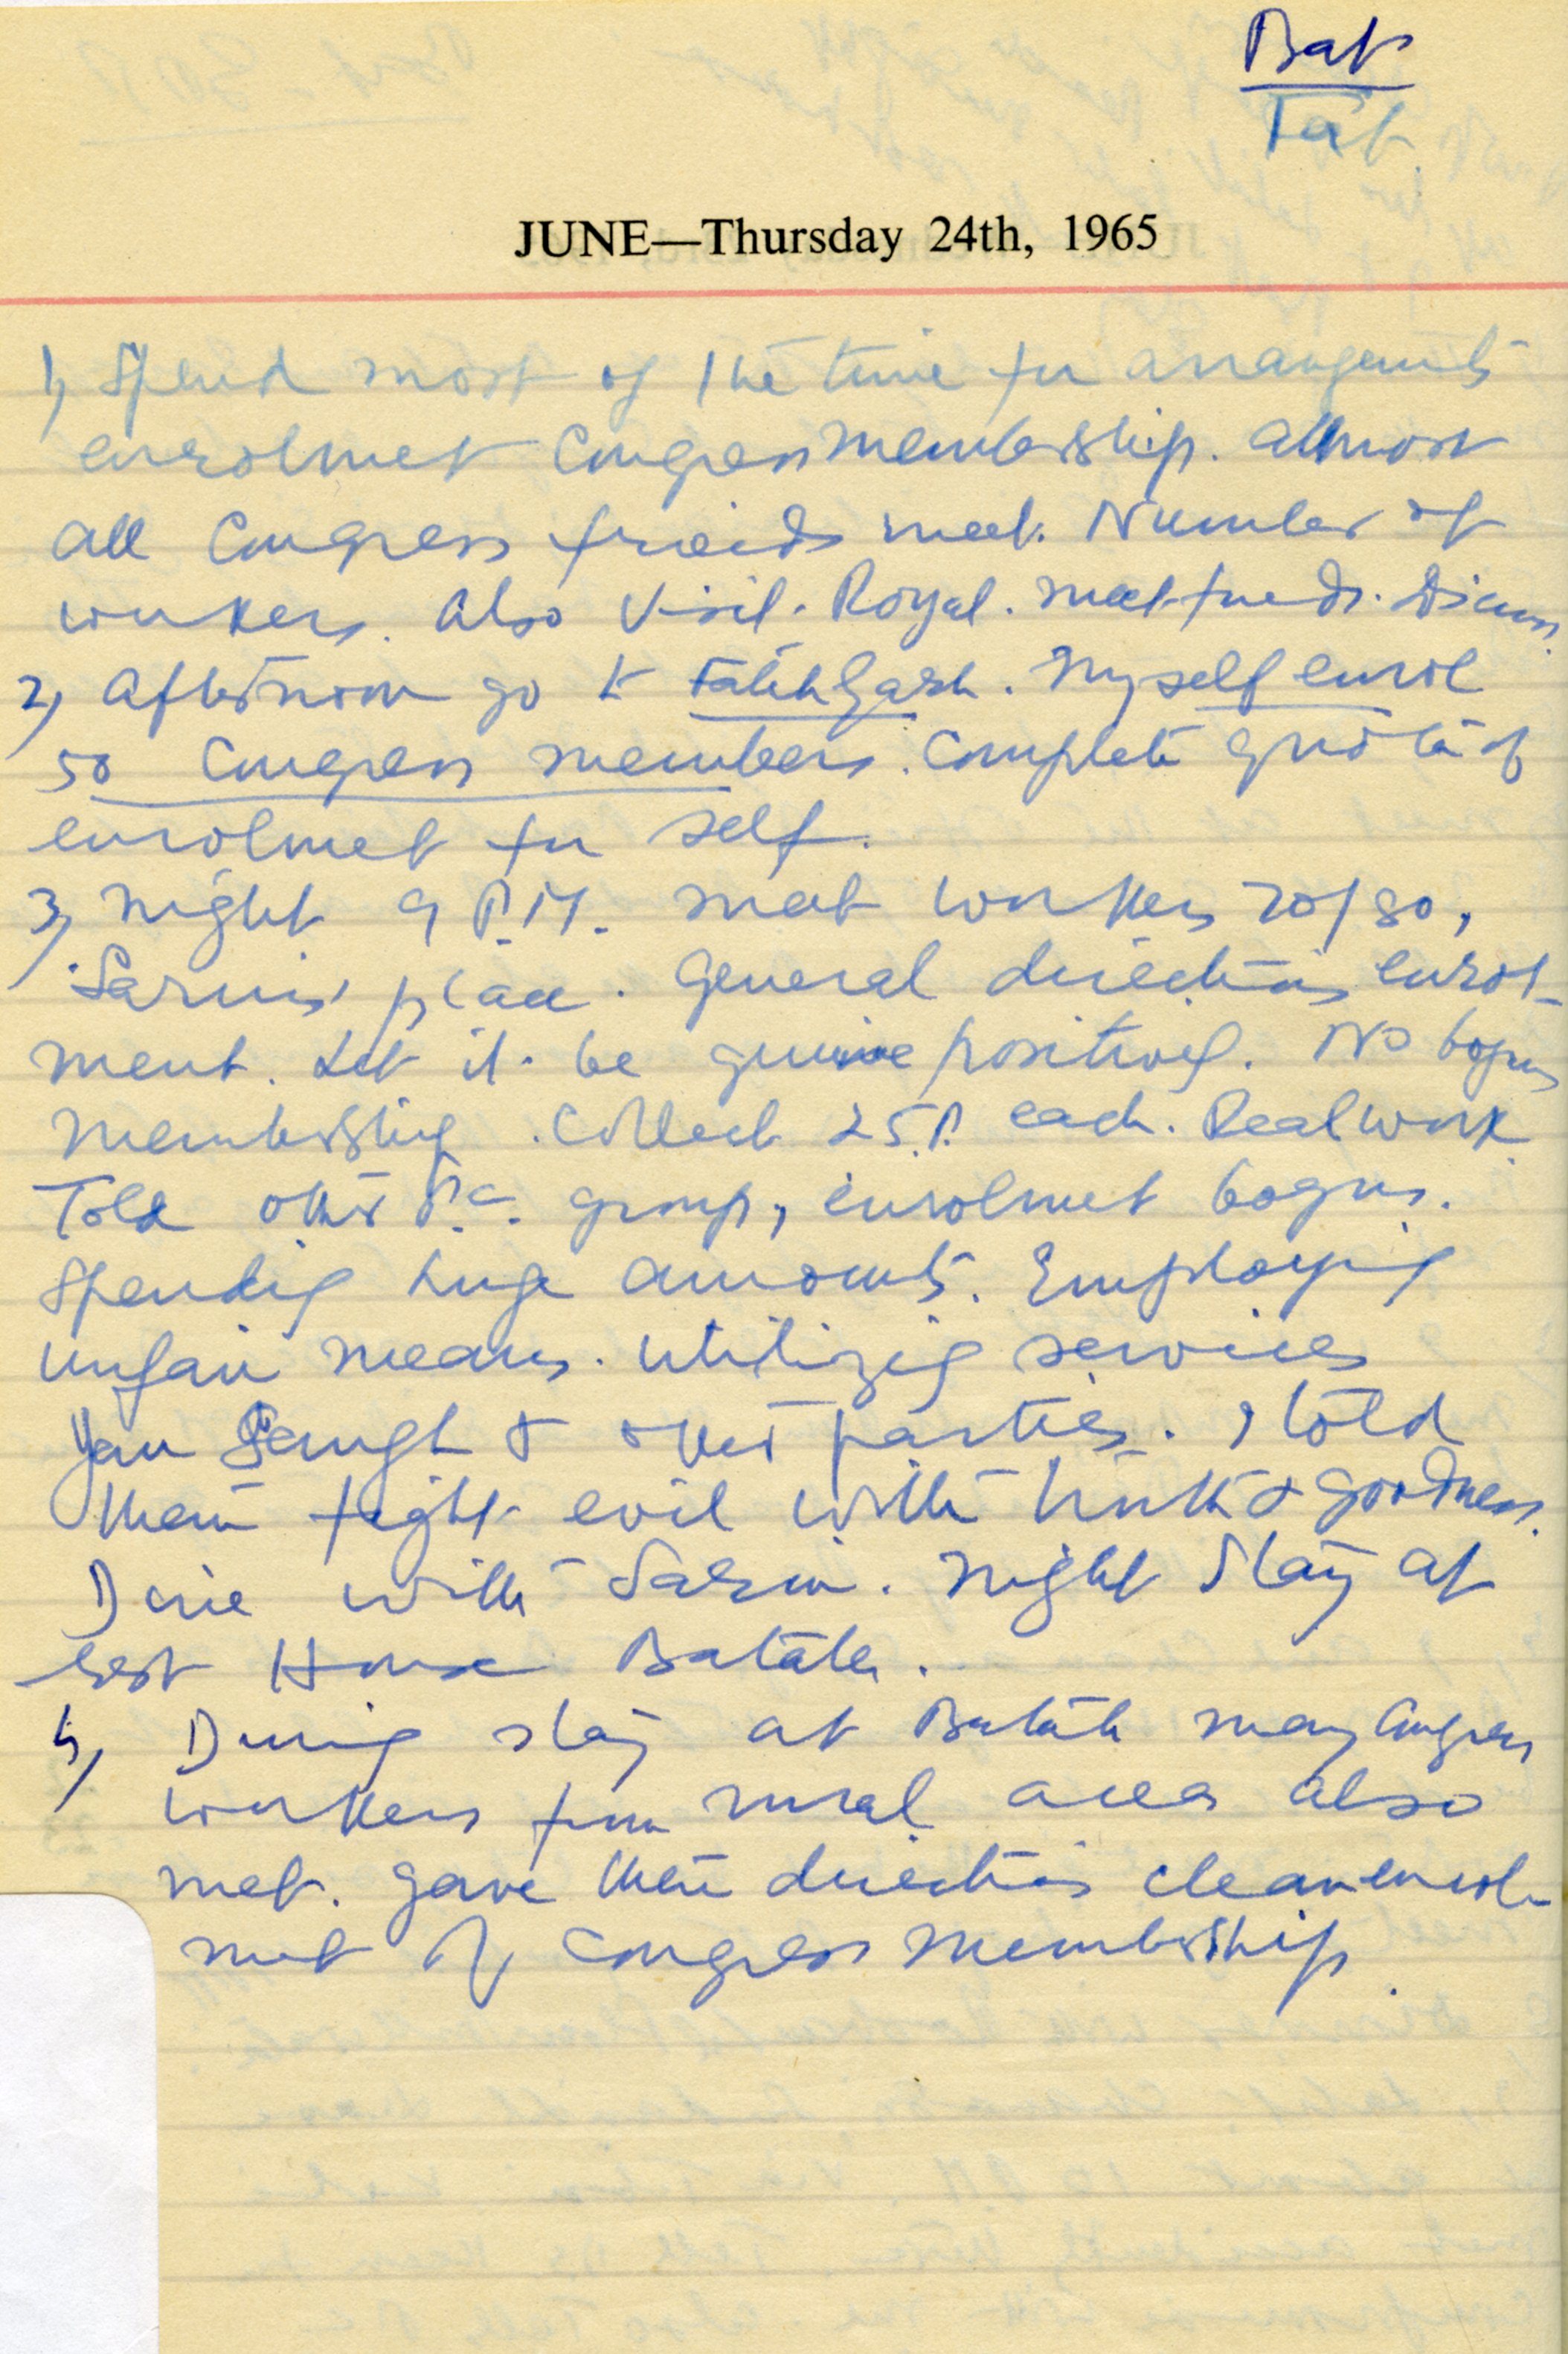 Bat
Fat
JUNE—Thursday 24th, 1965
1, Spend most of the time for arrangements
enrolmet Congress membership. Almost
all Congress friends meet. Number of
workers. Also visit Royal. meet friends. Discuss
2, Afternoon go to Fatehgarh. Myself enrol
50 Congress members. Complete quota of
enrolmet for self.
3, Night 9 P.M. meet workers 70/80,
Sarin's place. General directions enrol-
ment. Let it be genuine positively. No bogus
membership. Collect 25P. each. Real work.
Told other P.C. group, enrolmet bogus.
Spending huge amounts. Employing
unfair means. Utilizing services
Jan Sangh & other parties. I told
them fight evil with truth & goodness.
Dine with Sarin. Night stay at
rest House Batala.
4, During stay at Batala many Congress
workers from rural area also
met. Gave them directions clean enrol-
met of Congress membership.